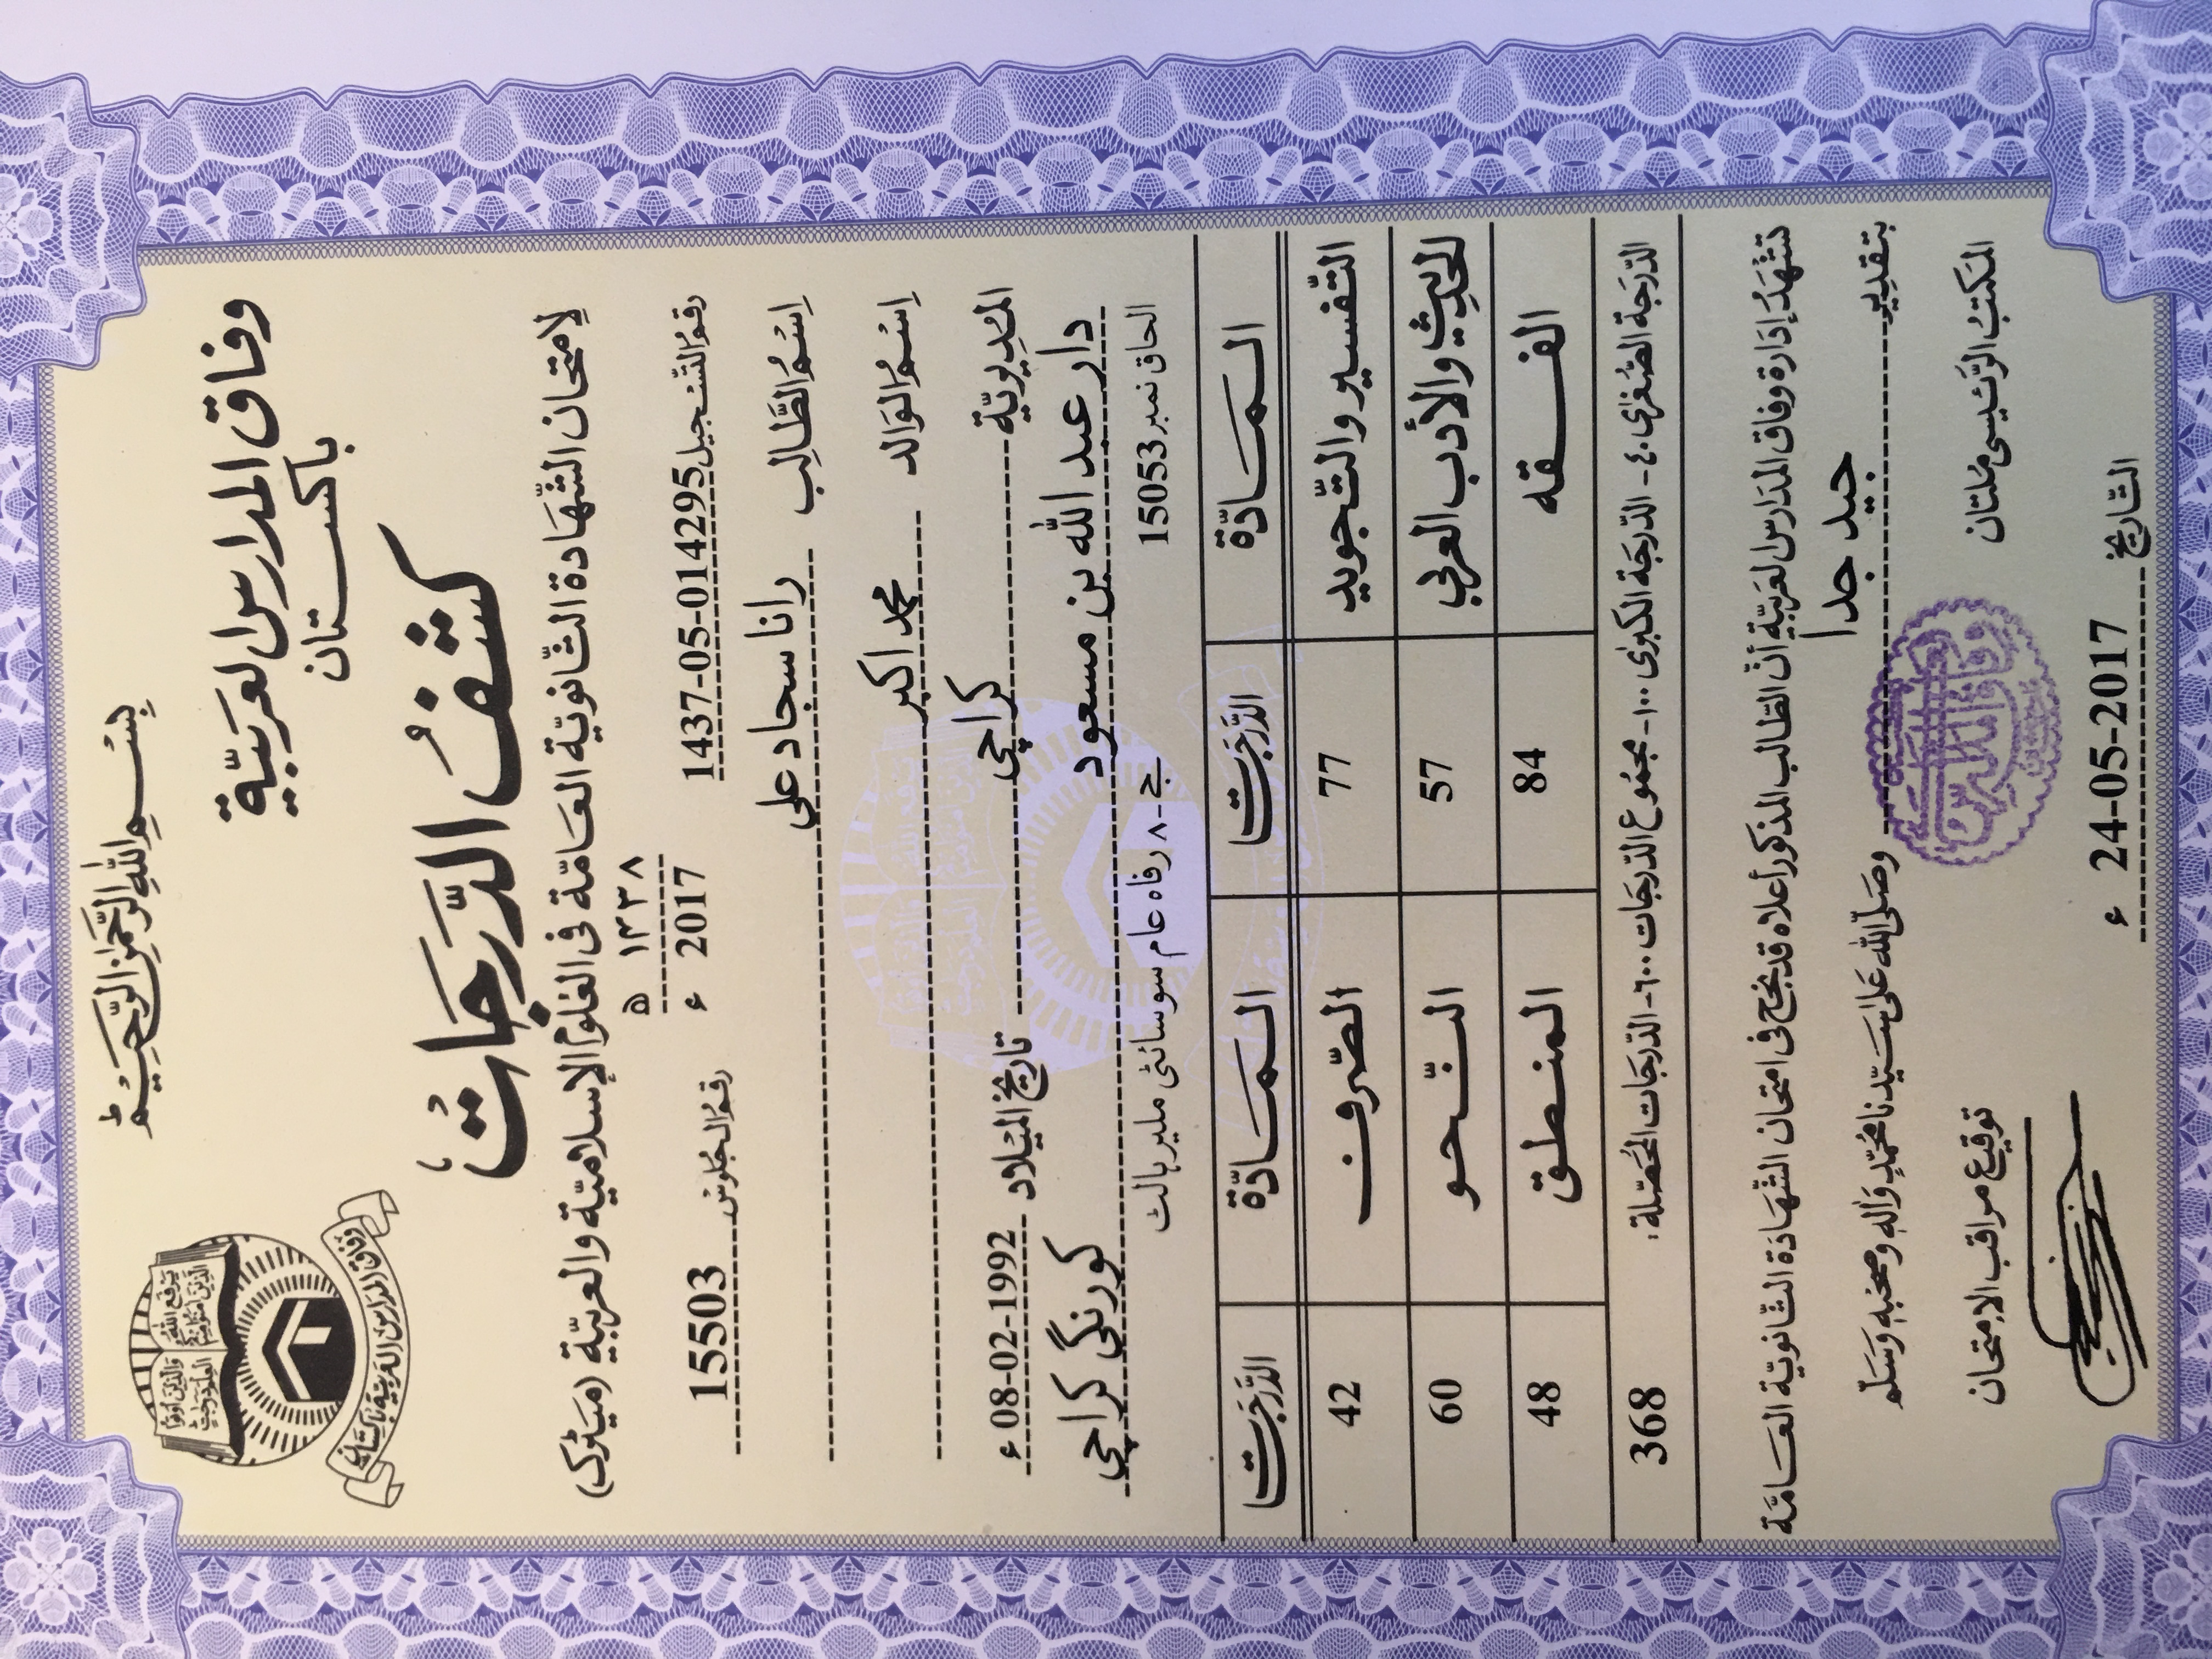 بِسْمِ اللهِ الرَّحْمٰنِ الرَّحِيْمِ
وفاق المدارس العربيّة
باكستان
كشفُ الدَّرَجَاتُ
لِامتحان الشّهادة الثّانويّة العَامّة فى العُلوم الإسلاميّة والعربيّة (ميٹرک)
رقم التّسجيل 1437-05-014295 ١٤٣٨ ه 2017 ء رقم الجلوس 15503
اِسمُ الطَّالِب رانا سجاد علی
اِسمُ الوَالد محمد اکبر
المُديريّة کراچی تاريخ الميلاد 08-02-1992 ء
دار عبد الله بن مسعود کورنگی کراچی
الحاق نمبر 15053 ج-٨ رفاہ عام سوسائٹی ملیر ہالٹ
المَادّة الدَّرَجَات المَادّة الدَّرَجَات
التّفسير والتّجويد 77 الصّرف 42
الحديث والأدب العربي 57 النّحو 60
الفقه 84 المنطق 48
الدّرجة الصّغرى ٤٠- الدّرجة الكبرى ١٠٠- مجموع الدّرجات ٦٠٠- الدّرجات المُحَصّلة: 368
تشهَدُ إدَارة وفاق المدَارس العَربيّة أنّ الطّالب المذكور أعلاه قد نجح فى امتحان الشّهَادَة الثّانويّة العَامَّة
بتقدير جيد جدا وصَلّى الله عَلىٰ سَيّدنا مُحَمّدٍ وَّاٰلِهٖ وصَحْبِهٖ وَسَلّم
المَكتبُ الرّئيسى ملتان توقيع مراقب الامتحان
التّاريخ 24-05-2017 ء
وفاق المدارس العربية باكستان